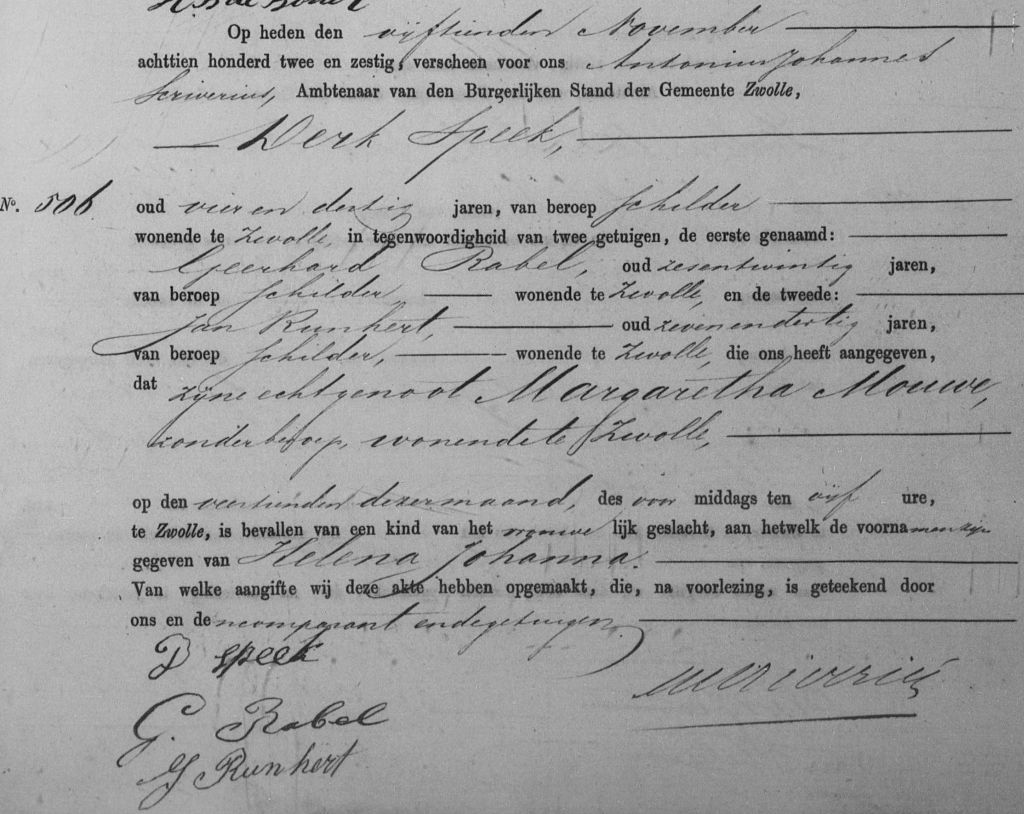 Op heden den vijftienden November
achttien honderd twee en zestig, verscheen voor ons Antonius Johannes
Scriverius, Ambtenaar van den Burgerlijken Stand der Gemeente Zwolle,
Derk Speek,
No. 506 oud vier en dertig jaren, van beroep schilder
wonende te Zwolle, in tegenwoordigheid van twee getuigen, de eerste genaamd:
Geerhard Rabel, oud zesentwintig jaren,
van beroep schilder, wonende te Zwolle, en de tweede:
Jan Runhert, oud zevenendertig jaren,
van beroep schilder, wonende te Zwolle, die ons heeft aangegeven,
dat zijne echtgenoot Margaretha Mouwe,
zonder beroep, wonende te Zwolle,
op den veertienden dezer maand, des voor middags ten vijf ure,
te Zwolle, is bevallen van een kind van het vrouwe lijk geslacht, aan hetwelk de voornamen zijn
gegeven van Helena Johanna.
Van welke aangifte wij deze akte hebben opgemaakt, die, na voorlezing, is geteekend door
ons en den comparant en de getuigen.
D Speek
G. Rabel
J Runhert